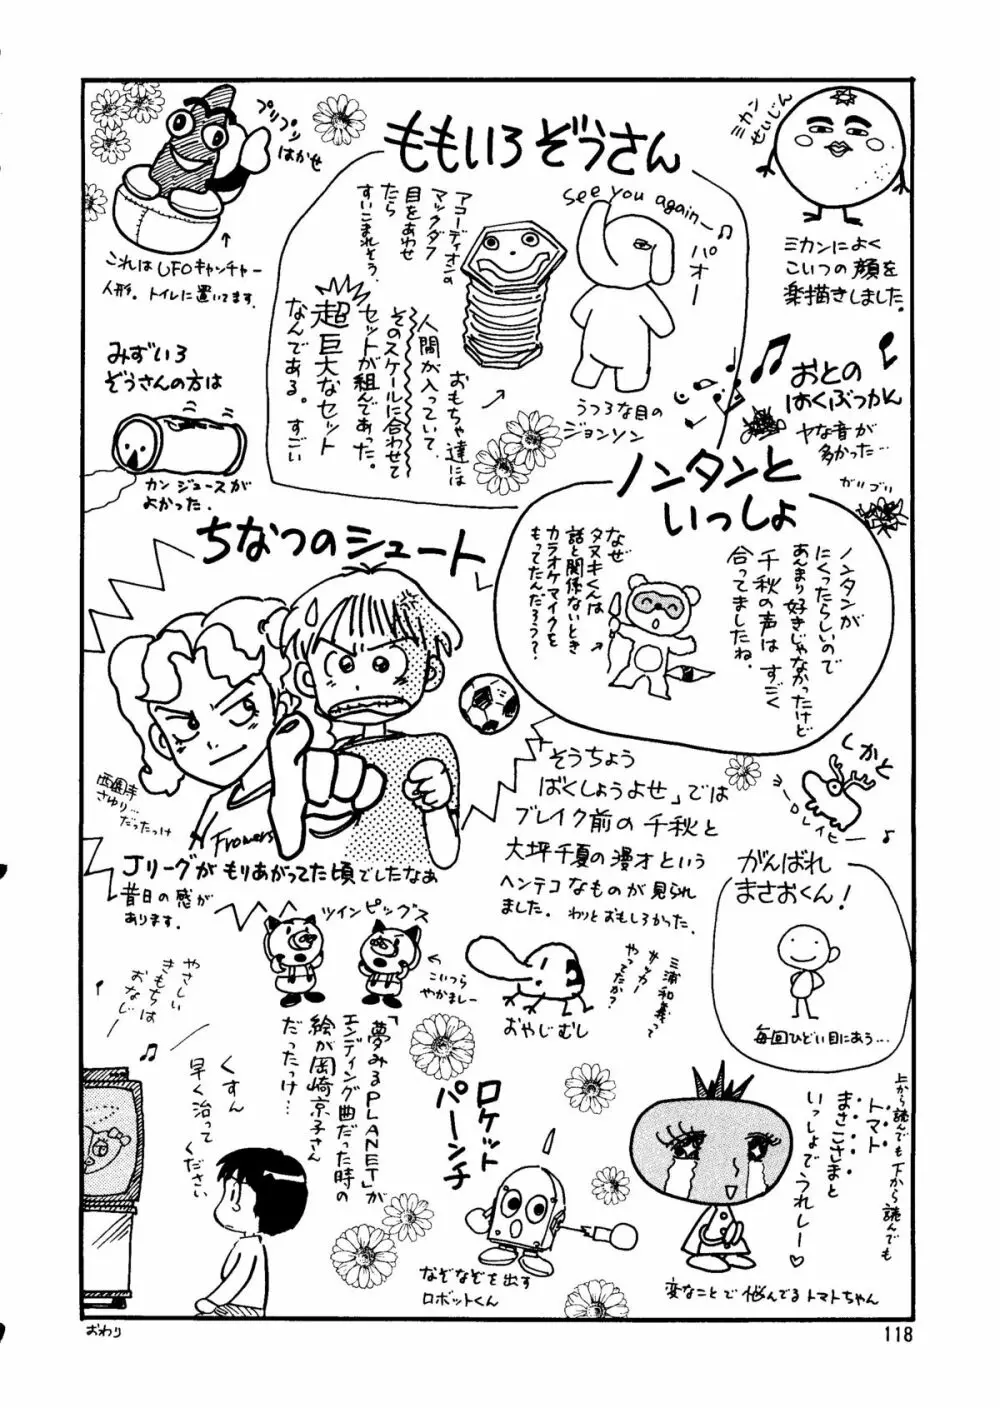 ももいろぞうさん
ミカン
せいじん
ミカンによく
こいつの顔を
楽描きしました。
see you again—♪
パオー
うつろな目の
ジョンソン
アコーディオンの
マックダフ
目をあわせ
たら
すいこまれそう。
おもちゃ達には
人間が入っていて
そのスケールに合わせて
セットが組んであった。
超巨大なセット
なんである。すごい
プリプリ
はかせ
これはUFOキャッチャー
人形。トイレに置いてます。
みずいろ
ぞうさんの方は
カンジュースが
よかった.
おとの
はくぶつかん
ヤな音が
多かった…
ガリゴリ
ノンタンと
いっしょ
ノンタンが
にくったらしいので
あんまり好きじゃなかったけど
千秋の声はすごく
合ってましたね。
なぜ
タヌキくんは
話と関係ないとき
カラオケマイクを
もってたんだろう?
ちなつのシュート
西園寺
さゆり…
だったっけ
Flowers
Jリーグがもりあがってた頃でしたなあ
昔日の感が
あります.
「そうちょう
ばくしょうよせ」では
ブレイク前の千秋と
大坪千夏の漫才という
ヘンテコなものが見られ
ました. わりとおもしろかった.
しかと
ヨーロレイヒー♪
がんばれ
まさおくん!
毎回ひどい目にあう…
ツインピッグス
こいつら
やかましー
「夢みるPLANET」が
エンディング曲だった時の
絵が岡崎京子さん
だったっけ…
三浦和義って
サッカー
やってたか?
おやじむし
やさしい
きもちは
おなじー
♪
くすん
早く治って
ください
ロケット
パーンチ
なぞなぞを出す
ロボットくん
上から読んでも下から読んでも
トマト
まさこさまと
いっしょでうれしー♡
変なことで悩んでるトマトちゃん
おわり
118